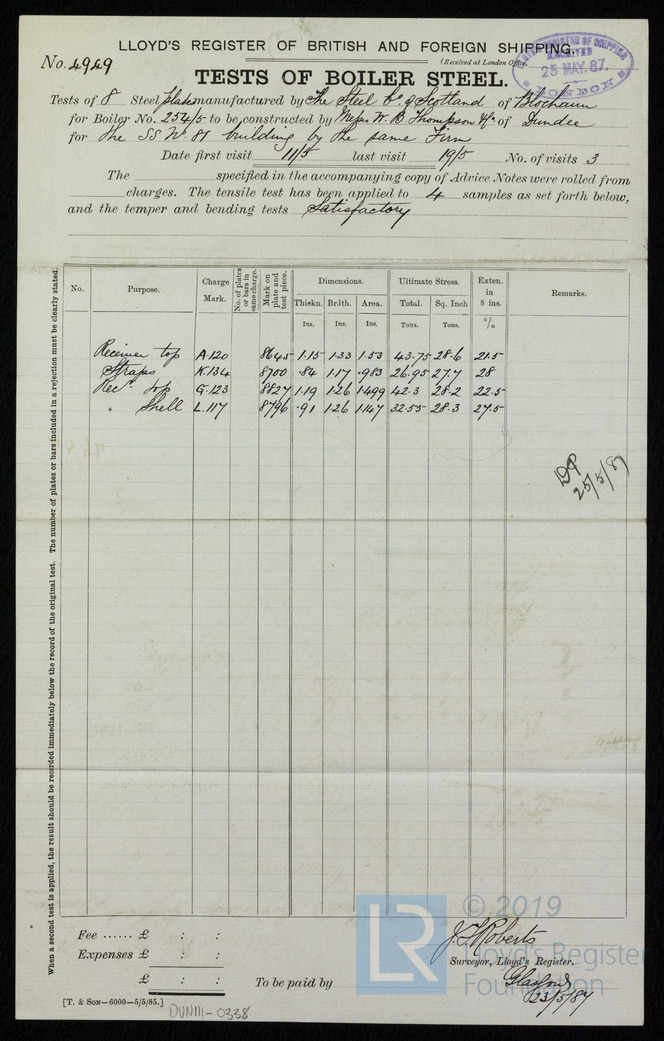 LLOYD'S REGISTER OF BRITISH AND FOREIGN SHIPPING.
(Received at London Office,
No. 4949
25 MAY. 87.
LONDON
TESTS OF BOILER STEEL.
Tests of 8 Steel Plates manufactured by The Steel Co. of Scotland of Blochairn
for Boiler No. 254/5 to be constructed by Messrs W. B. Thompson & Co of Dundee
for the SS No. 81 building by the same Firm
Date first visit 11/5 last visit 19/5 No. of visits 3
The specified in the accompanying copy of Advice Notes were rolled from
charges. The tensile test has been applied to 4 samples as set forth below,
and the temper and bending tests Satisfactory
No. Purpose. Charge Mark. No. of plates or bars in same charge. Mark on plate and test piece. Dimensions. Ultimate Stress. Exten. in 8 ins. Remarks.
Thickn. Brdth. Area. Total. Sq. Inch
Ins. Ins. Ins. Tons. Tons. %
Receiver top A.120 8645 1.15 1.33 1.53 43.75 28.6 21.5
Straps K.134 8700 .84 1.17 .983 26.95 27.4 28
Recr. top G.123 8827 1.19 1.26 1.499 42.3 28.2 22.5
" Shell L.117 8796 .91 1.26 1.147 32.55 28.3 27.5
25/5/87
When a second test is applied, the result should be recorded immediately below the record of the original test. The number of plates or bars included in a rejection must be clearly stated.
Fee ...... £ : :
Expenses £ : :
£ : :
To be paid by
J. T. Roberts
Surveyor, Lloyd's Register.
Glasgow
23/5/87
[T. & Son—6000—5/5/85.]
DUN111-0338
LR
© 2019
Lloyd's Register
Foundation